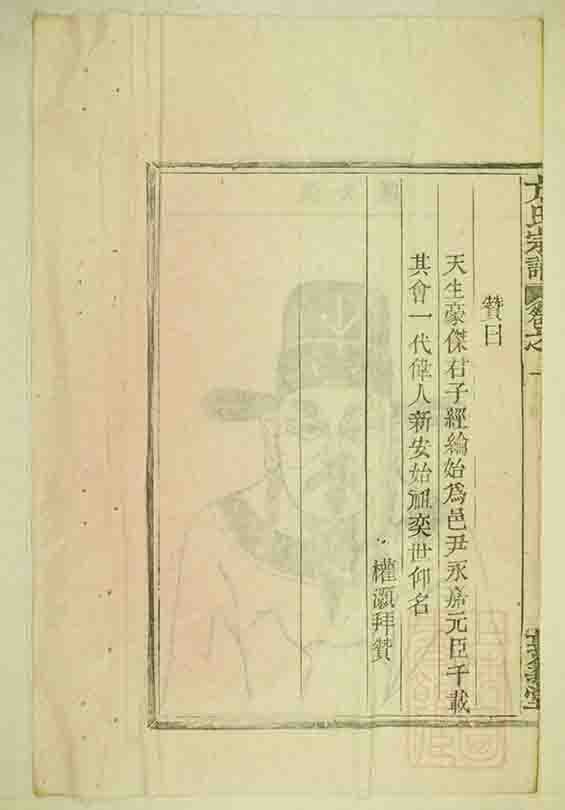 方氏宗譜 卷之一
贊曰
天生豪傑君子經綸始為邑尹永嘉元臣千載
其會一代偉人新安始祖奕世仰名
權灝拜贊